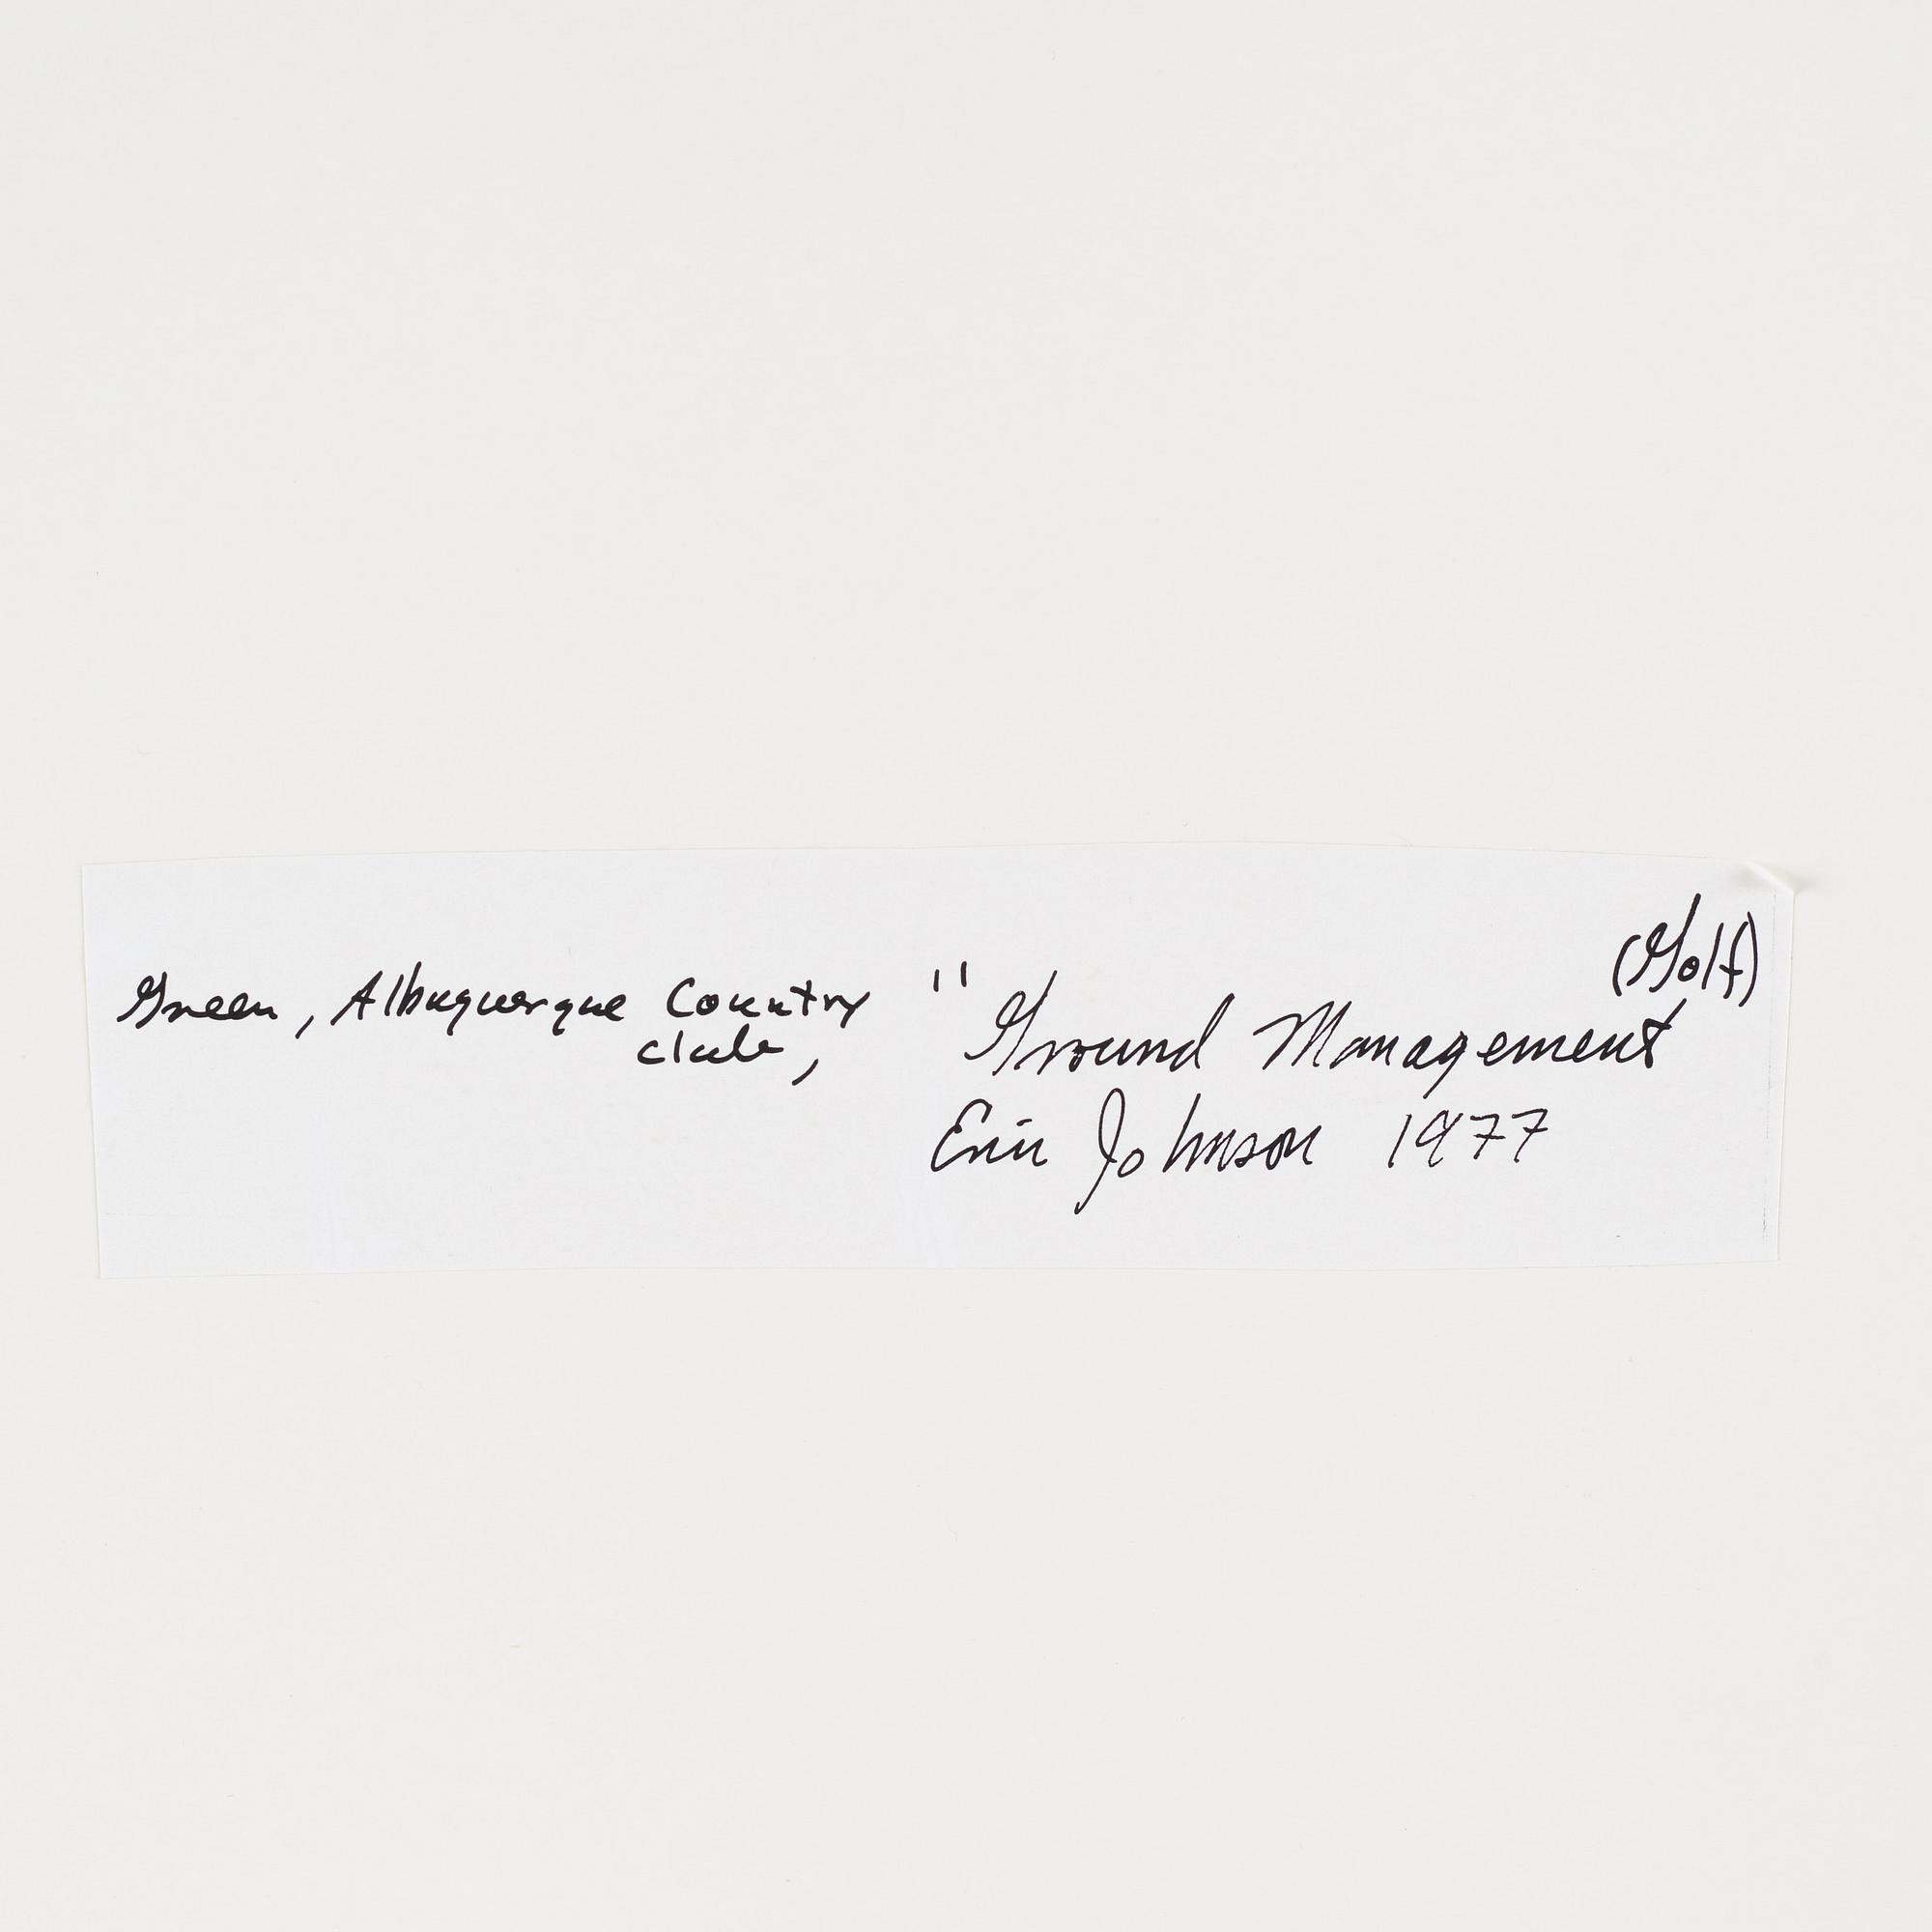 (Golf)
Green, Albuquerque Country " Ground Management
club,
Eric Johnson 1977